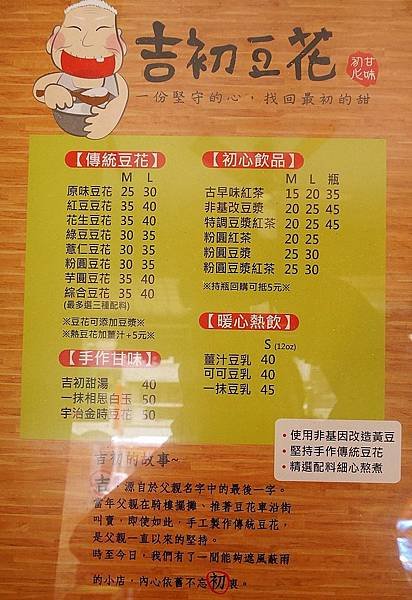 吉初豆花
甘味
初心
一份堅守的心，找回最初的甜
【傳統豆花】
M L
原味豆花 25 30
紅豆豆花 35 40
花生豆花 35 40
綠豆豆花 30 35
薏仁豆花 30 35
粉圓豆花 30 35
芋圓豆花 35 40
綜合豆花 35 40
(最多選三種配料)
※豆花可添加豆漿※
※熱豆花加薑汁+5元※
【手作甘味】
吉初甜湯 40
一抹相思白玉 50
宇治金時豆花 50
【初心飲品】
M L 瓶
古早味紅茶 15 20 35
非基改豆漿 20 25 45
特調豆漿紅茶 20 25 45
粉圓紅茶 20 25
粉圓豆漿 25 30
粉圓豆漿紅茶 25 30
※持瓶回購可抵5元※
【暖心熱飲】
S (12oz)
薑汁豆乳 40
可可豆乳 40
一抹豆乳 45
•使用非基因改造黃豆
•堅持手作傳統豆花
•精選配料細心熬煮
吉初的故事~
吉，源自於父親名字中的最後一字。
當年父親在騎樓擺攤、推著豆花車沿街
叫賣，即使如此，手工製作傳統豆花，
是父親一直以來的堅持。
時至今日，我們有了一間能夠遮風蔽雨
的小店，內心依舊不忘初衷。